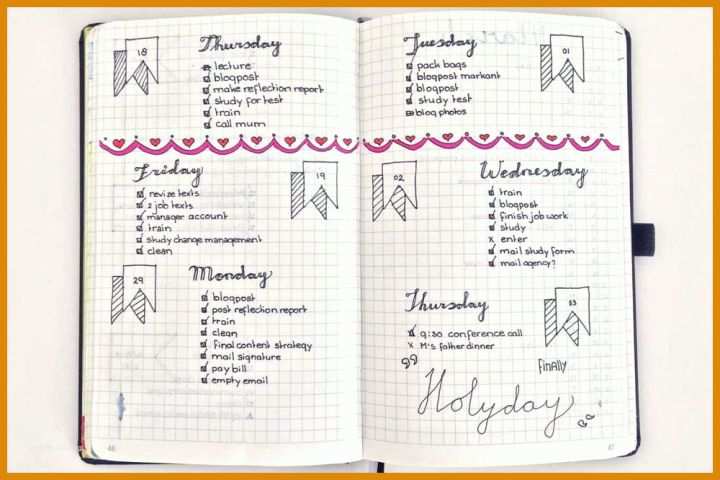 18
Thursday
lecture
blogpost
make reflection report
study for test
train
call mum
Friday
19
revize texts
2 job texts
manager account
train
study change management
clean
29
Monday
blogpost
post reflection report
train
clean
final content strategy
mail signature
pay bill
empty email
46
Tuesday
01
pack bags
blogpost markant
blogpost
study test
blog photos
02
Wednesday
train
blogpost
finish job work
study
x enter
mail study form
mail agency?
Thursday
03
9:30 conference call
x M's father dinner
finally
Holyday
47